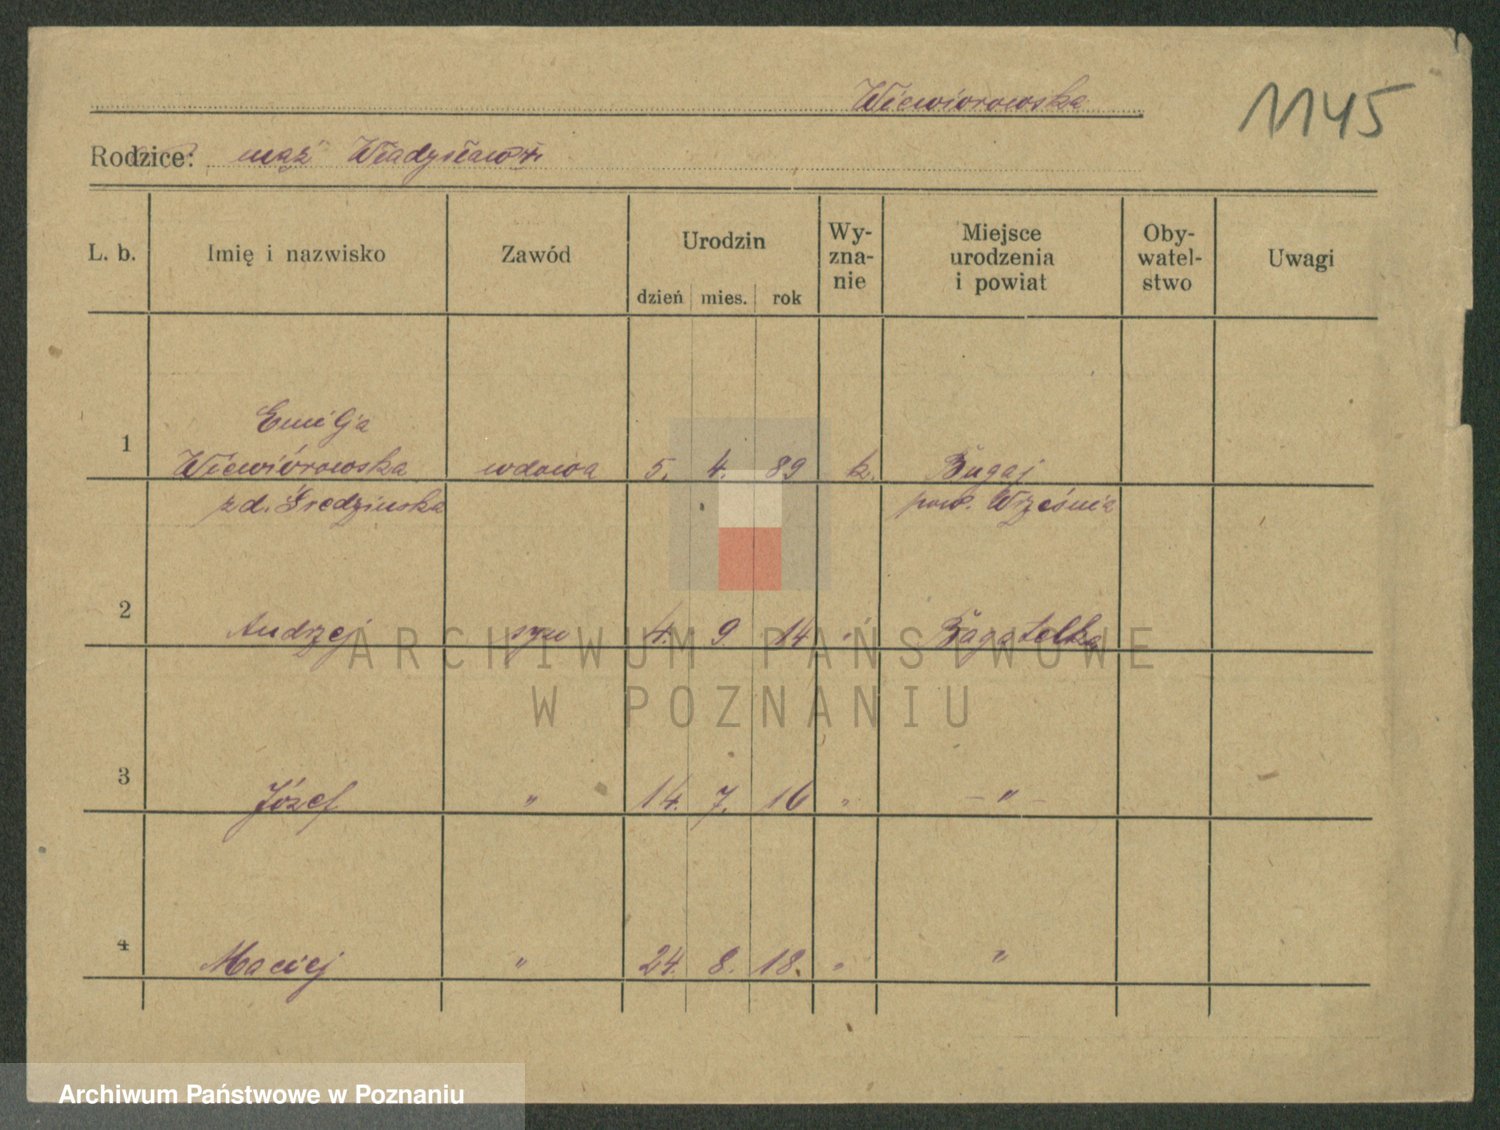 Wiewiorowska
1145
Rodzice: mąż Władysław
L. b. Imię i nazwisko Zawód Urodzin dzień mies. rok Wy-zna-nie Miejsce urodzenia i powiat Oby-watel-stwo Uwagi
1 Emilja
Wiewiórowska wdowa 5. 4. 89 k. Bugaj
zd. Średzinska pow. Września
2 Andrzej syn 4. 9. 14 " Bagatelka
3 Józef " 14. 7. 16 " - " -
4 Maciej " 24. 8. 18. " "
ARCHIWUM PAŃSTWOWE
W POZNANIU
Archiwum Państwowe w Poznaniu